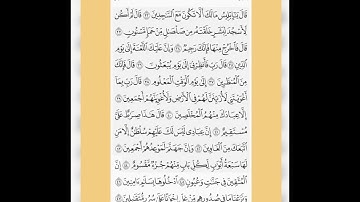 قَالَ يَٰٓإِبۡلِيسُ مَا لَكَ أَلَّا تَكُونَ مَعَ ٱلسَّٰجِدِينَ ٣٢ قَالَ لَمۡ أَكُن
لِّأَسۡجُدَ لِبَشَرٍ خَلَقۡتَهُۥ مِن صَلۡصَٰلٖ مِّنۡ حَمَإٖ مَّسۡنُونٖ ٣٣
قَالَ فَٱخۡرُجۡ مِنۡهَا فَإِنَّكَ رَجِيمٞ ٣٤ وَإِنَّ عَلَيۡكَ ٱللَّعۡنَةَ إِلَىٰ يَوۡمِ
ٱلدِّينِ ٣٥ قَالَ رَبِّ فَأَنظِرۡنِيٓ إِلَىٰ يَوۡمِ يُبۡعَثُونَ ٣٦ قَالَ فَإِنَّكَ
مِنَ ٱلۡمُنظَرِينَ ٣٧ إِلَىٰ يَوۡمِ ٱلۡوَقۡتِ ٱلۡمَعۡلُومِ ٣٨ قَالَ رَبِّ بِمَآ
أَغۡوَيۡتَنِي لَأُزَيِّنَنَّ لَهُمۡ فِي ٱلۡأَرۡضِ وَلَأُغۡوِيَنَّهُمۡ أَجۡمَعِينَ ٣٩
إِلَّا عِبَادَكَ مِنۡهُمُ ٱلۡمُخۡلَصِينَ ٤٠ قَالَ هَٰذَا صِرَٰطٌ عَلَيَّ
مُسۡتَقِيمٌ ٤١ إِنَّ عِبَادِي لَيۡسَ لَكَ عَلَيۡهِمۡ سُلۡطَٰنٌ إِلَّا مَنِ
ٱتَّبَعَكَ مِنَ ٱلۡغَاوِينَ ٤٢ وَإِنَّ جَهَنَّمَ لَمَوۡعِدُهُمۡ أَجۡمَعِينَ ٤٣
لَهَا سَبۡعَةُ أَبۡوَٰبٖ لِّكُلِّ بَابٖ مِّنۡهُمۡ جُزۡءٞ مَّقۡسُومٌ ٤٤ إِنَّ
ٱلۡمُتَّقِينَ فِي جَنَّٰتٖ وَعُيُونٍ ٤٥ ٱدۡخُلُوهَا بِسَلَٰمٍ ءَامِنِينَ ٤٦
وَنَزَعۡنَا مَا فِي صُدُورِهِم مِّنۡ غِلٍّ إِخۡوَٰنًا عَلَىٰ سُرُرٖ مُّتَقَٰبِلِينَ ٤٧